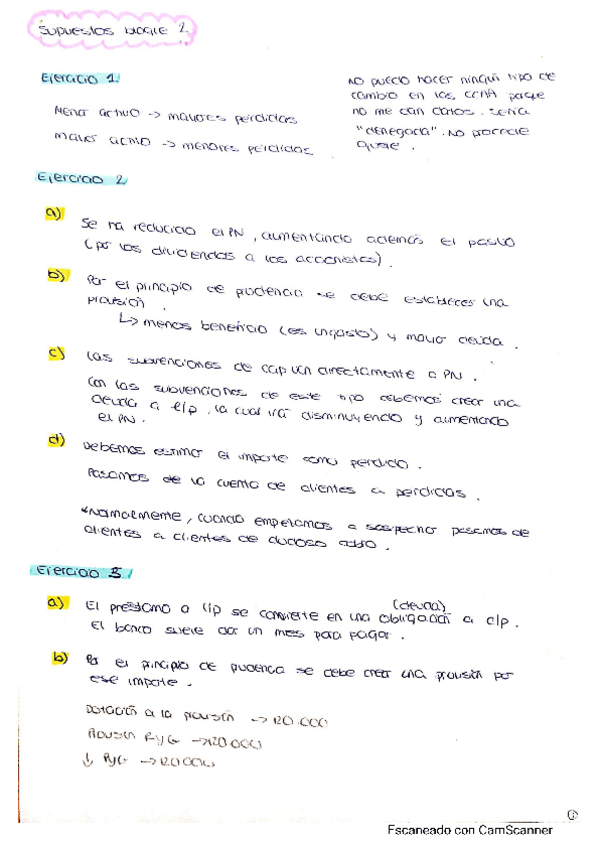 Supuestos bloque 2
Ejercicio 1
Menor activo -> mayores perdidas
mayor activo -> menores perdidas
No puedo hacer ningún tipo de
cambio en las CCAA porque
no me dan datos. Sería
"denegada". No procede
Ejercicio 2
a)
Se ha reducido el PN, aumentando además el pasivo
(por los dividendos a los accionistas).
b)
Por el principio de prudencia se debe establecer una
provisión.
↳ menos beneficio (es un gasto) y mayor deuda.
c)
Las subvenciones de cap van directamente a PN.
Con las subvenciones de este tipo debemos crear una
deuda a c/p, la cual irá disminuyendo y aumentando
el PN.
d)
Debemos estimar el importe como perdida.
Pasamos de la cuenta de clientes a perdidas.
*Normalmente, cuando empezamos a sospechar pasamos de
clientes a clientes de dudoso cobro.
Ejercicio 3
a)
(deuda)
El préstamo a l/p se convierte en una obligación a c/p.
El banco suele dar un mes para pagar.
b)
Por el principio de prudencia se debe crear una provisión por
ese importe.
Dotación a la provisión -> 120.000
Provisión PyG -> 120.000
↓ PyG -> 120.000
①
Escaneado con CamScanner